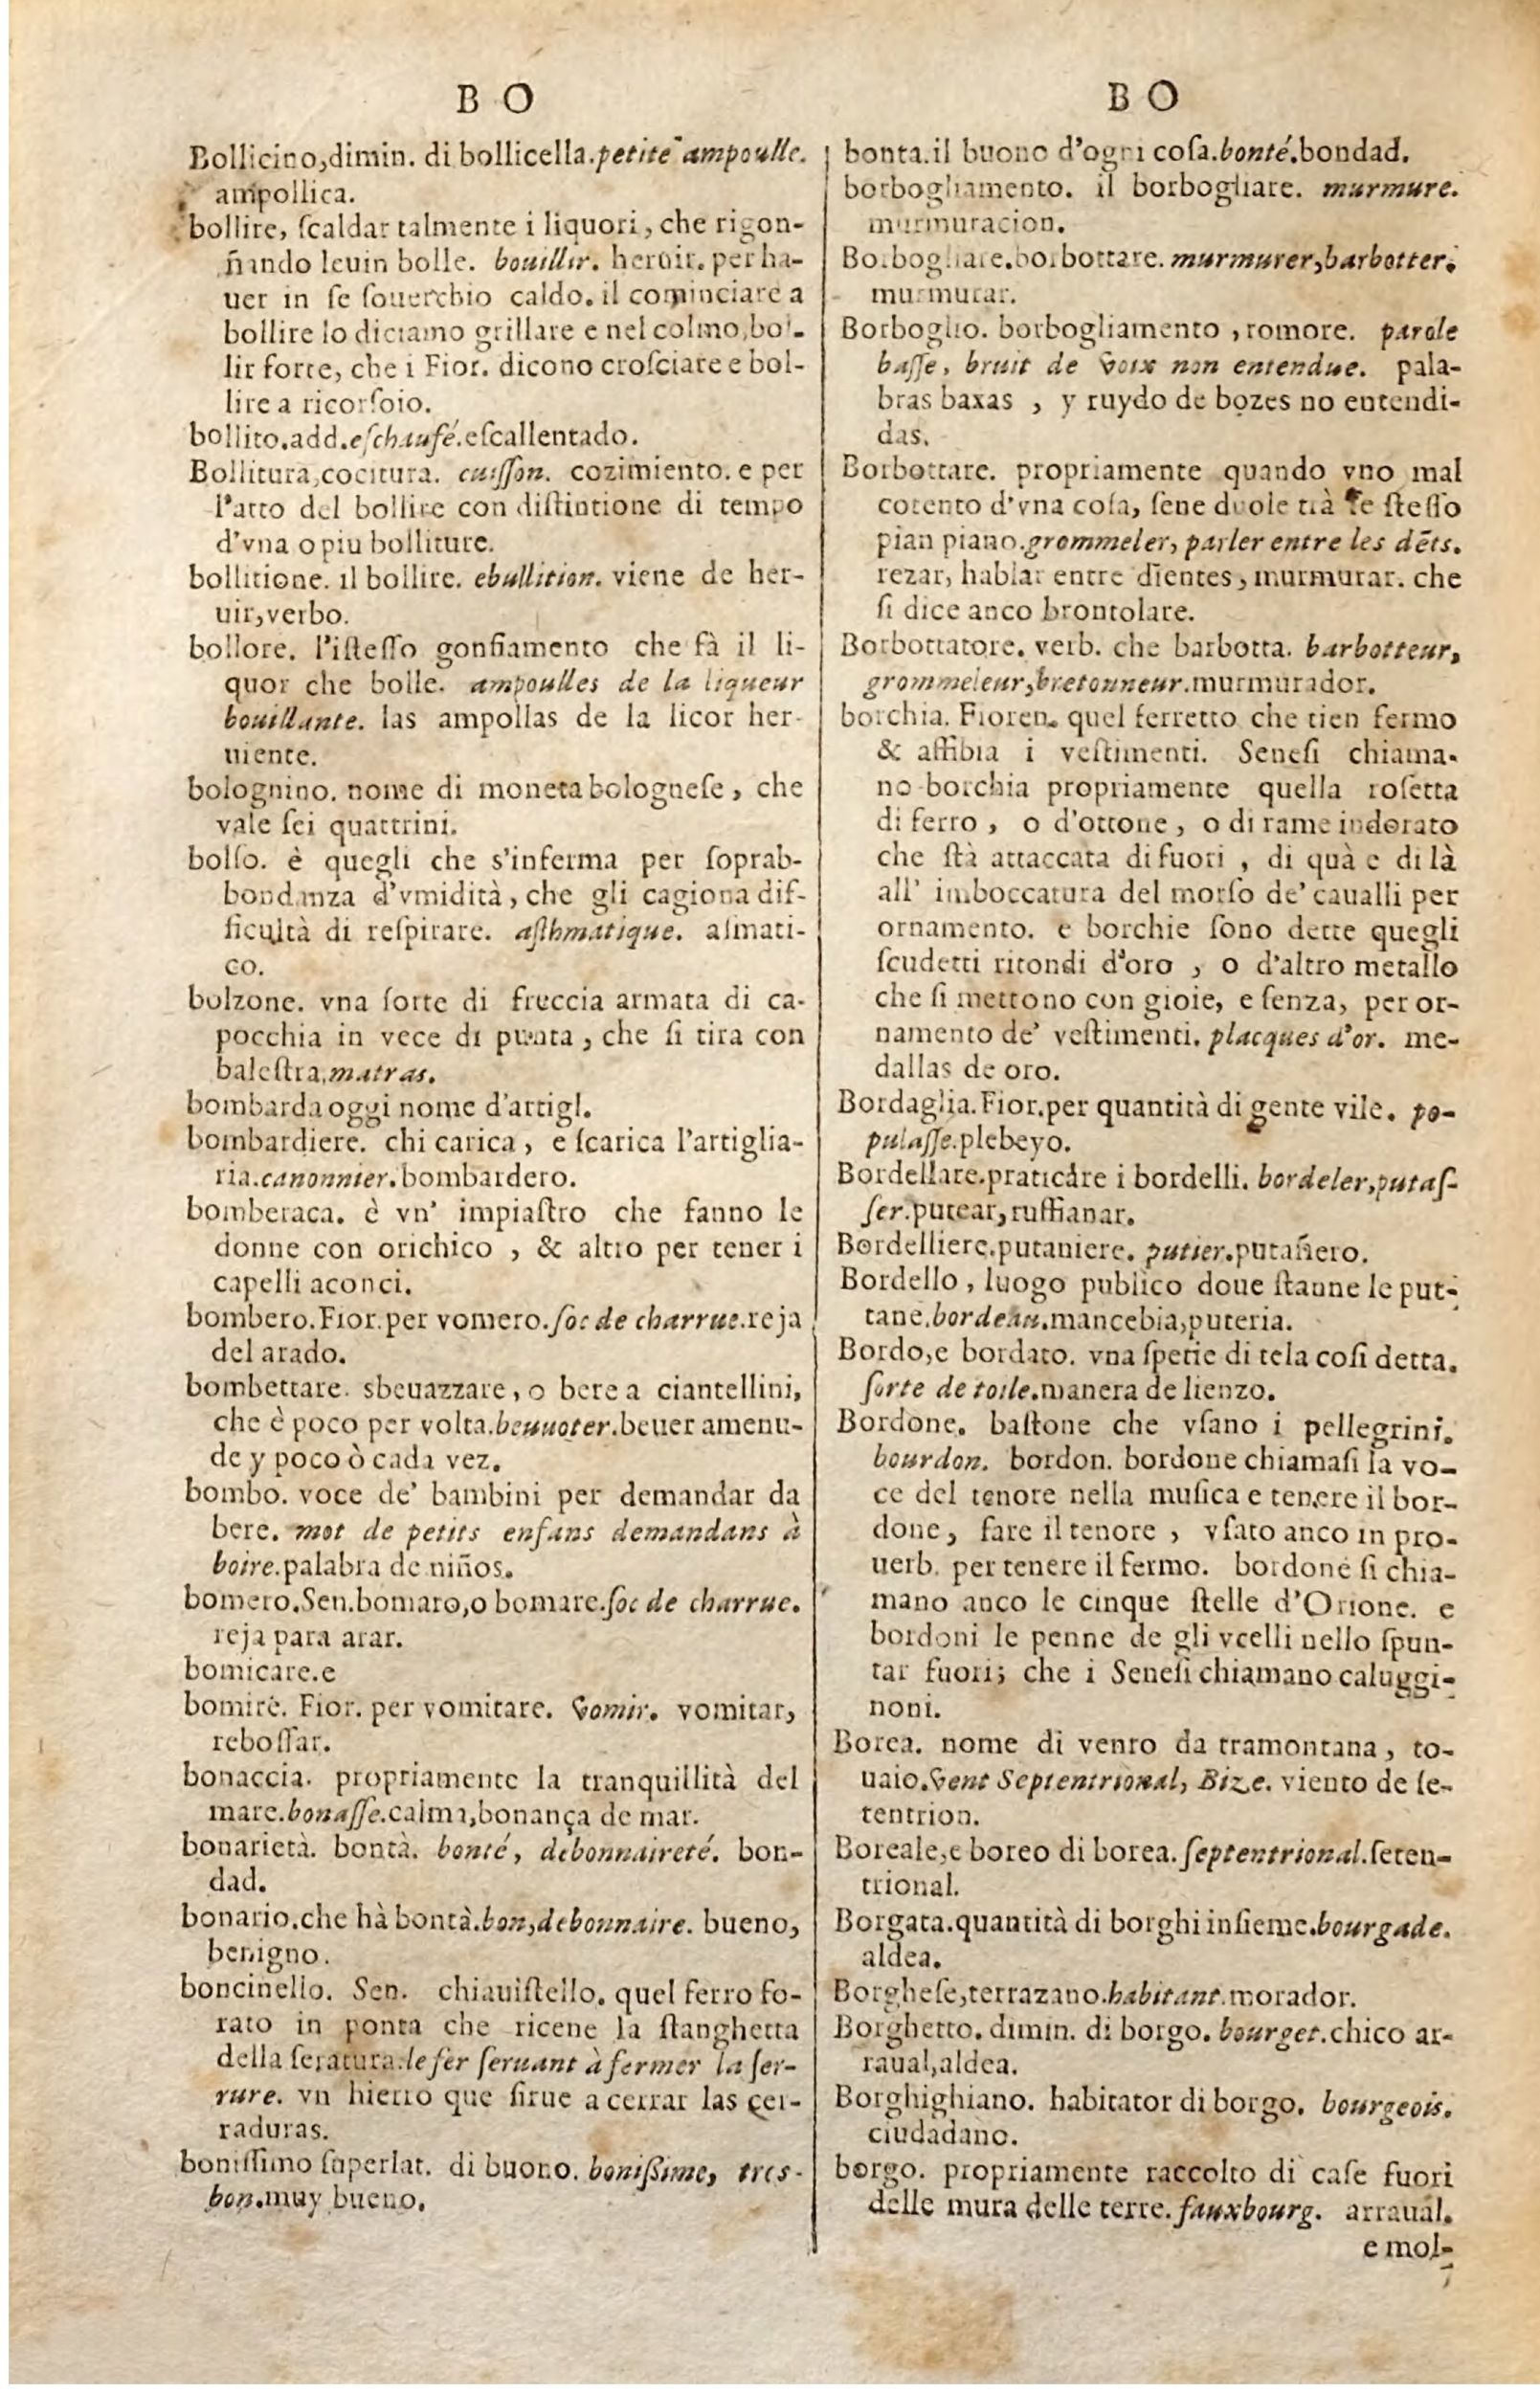 B O
Bollicino,dimin. di bollicella.petite ampoulle.
ampollica.
bollire, ſcaldar talmente i liquori, che rigon-
ñando leuin bolle. bouillir. heruir. per ha-
uer in ſe ſouerchio caldo. il cominciare a
bollire lo diciamo grillare e nel colmo,bol-
lir forte, che i Fior. dicono croſciare e bol-
lire a ricorſoio.
bollito.add.eſchaufé.eſcallentado.
Bollitura,cocitura. cuiſſon. cozimiento. e per
l'atto del bollire con diſtintione di tempo
d'vna o piu bolliture.
bollitione. il bollire. ebullition. viene de her-
uir,verbo.
bollore. l'iſteſſo gonfiamento che fà il li-
quor che bolle. ampoulles de la liqueur
bouillante. las ampollas de la licor her-
uiente.
bolognino. nome di moneta bologneſe, che
vale ſei quattrini.
bolſo. è quegli che s'inferma per ſoprab-
bondanza d'vmidità, che gli cagiona dif-
ficultà di reſpirare. aſthmatique. aſmati-
co.
bolzone. vna ſorte di freccia armata di ca-
pocchia in vece di punta, che ſi tira con
baleſtra,matras.
bombarda oggi nome d'artigl.
bombardiere. chi carica, e ſcarica l'artiglia-
ria.canonnier.bombardero.
bomberaca. è vn' impiaſtro che fanno le
donne con orichico, & altro per tener i
capelli aconci.
bombero.Fior.per vomero.ſoc de charrue.reja
del arado.
bombettare. sbeuazzare, o bere a ciantellini,
che è poco per volta.beuuoter.beuer amenu-
de y poco ò cada vez.
bombo. voce de' bambini per demandar da
bere. mot de petits enfans demandans à
boire.palabra de niños.
bomero.Sen.bomaro,o bomare.ſoc de charrue.
reja para arar.
bomicare.e
bomire. Fior. per vomitare. vomir. vomitar,
reboſſar.
bonaccia. propriamente la tranquillità del
mare.bonaſſe.calma,bonança de mar.
bonarietà. bontà. bonté, debonnaireté. bon-
dad.
bonario.che hà bontà.bon,debonnaire. bueno,
benigno.
boncinello. Sen. chiauiſtello. quel ferro fo-
rato in ponta che ricene la ſtanghetta
della ſeratura.le fer ſeruant à fermer la ſer-
rure. vn hierro que ſirue a cerrar las cer-
raduras.
boniſſimo ſuperlat. di buono. boniſſime, tres-
bon.muy bueno.
B O
bonta.il buono d'ogni coſa.bonté.bondad.
borbogliamento. il borbogliare. murmure.
murmuracion.
Borbogliare.borbottare. murmurer,barbotter.
murmurar.
Borboglio. borbogliamento, romore. parole
baſſe, bruit de voix non entendue. pala-
bras baxas, y ruydo de bozes no entendi-
das.
Borbottare. propriamente quando vno mal
cotento d'vna coſa, ſene duole trà ſe ſteſſo
pian piano.grommeler, parler entre les dẽts.
rezar, hablar entre dientes, murmurar. che
ſi dice anco brontolare.
Borbottatore. verb. che barbotta. barbotteur,
grommeleur,bretonneur.murmurador.
borchia. Fioren. quel ferretto che tien fermo
& affibia i veſtimenti. Seneſi chiama-
no borchia propriamente quella roſetta
di ferro, o d'ottone, o di rame indorato
che ſtà attaccata di fuori, di quà e di là
all' imboccatura del morſo de' caualli per
ornamento. e borchie ſono dette quegli
ſcudetti ritondi d'oro, o d'altro metallo
che ſi mettono con gioie, e ſenza, per or-
namento de' veſtimenti. placques d'or. me-
dallas de oro.
Bordaglia.Fior.per quantità di gente vile. po-
pulaſſe.plebeyo.
Bordellare.praticáre i bordelli. bordeler,putaſ-
ſer.putear,ruffianar.
Bordelliere.putaniere. putier.putañero.
Bordello, luogo publico doue ſtanne le put-
tane.bordeau.mancebia,puteria.
Bordo,e bordato. vna ſpetie di tela coſi detta.
ſorte de toile.manera de lienzo.
Bordone. baſtone che vſano i pellegrini.
bourdon. bordon. bordone chiamaſi la vo-
ce del tenore nella muſica e tenere il bor-
done, fare il tenore, vſato anco in pro-
uerb. per tenere il fermo. bordone ſi chia-
mano anco le cinque ſtelle d'Orione. e
bordoni le penne de gli vcelli nello ſpun-
tar fuori; che i Seneſi chiamano caluggi-
noni.
Borea. nome di vento da tramontana, to-
uaio.vent Septentrional, Bize. viento de ſe-
tentrion.
Boreale,e boreo di borea.ſeptentrional.ſeten-
trional.
Borgata.quantità di borghi inſieme.bourgade.
aldea.
Borgheſe,terrazano.habitant.morador.
Borghetto. dimin. di borgo. bourget.chico ar-
raual,aldea.
Borghighiano. habitator di borgo. bourgeois.
ciudadano.
borgo. propriamente raccolto di caſe fuori
delle mura delle terre.fauxbourg. arraual.
e mol-